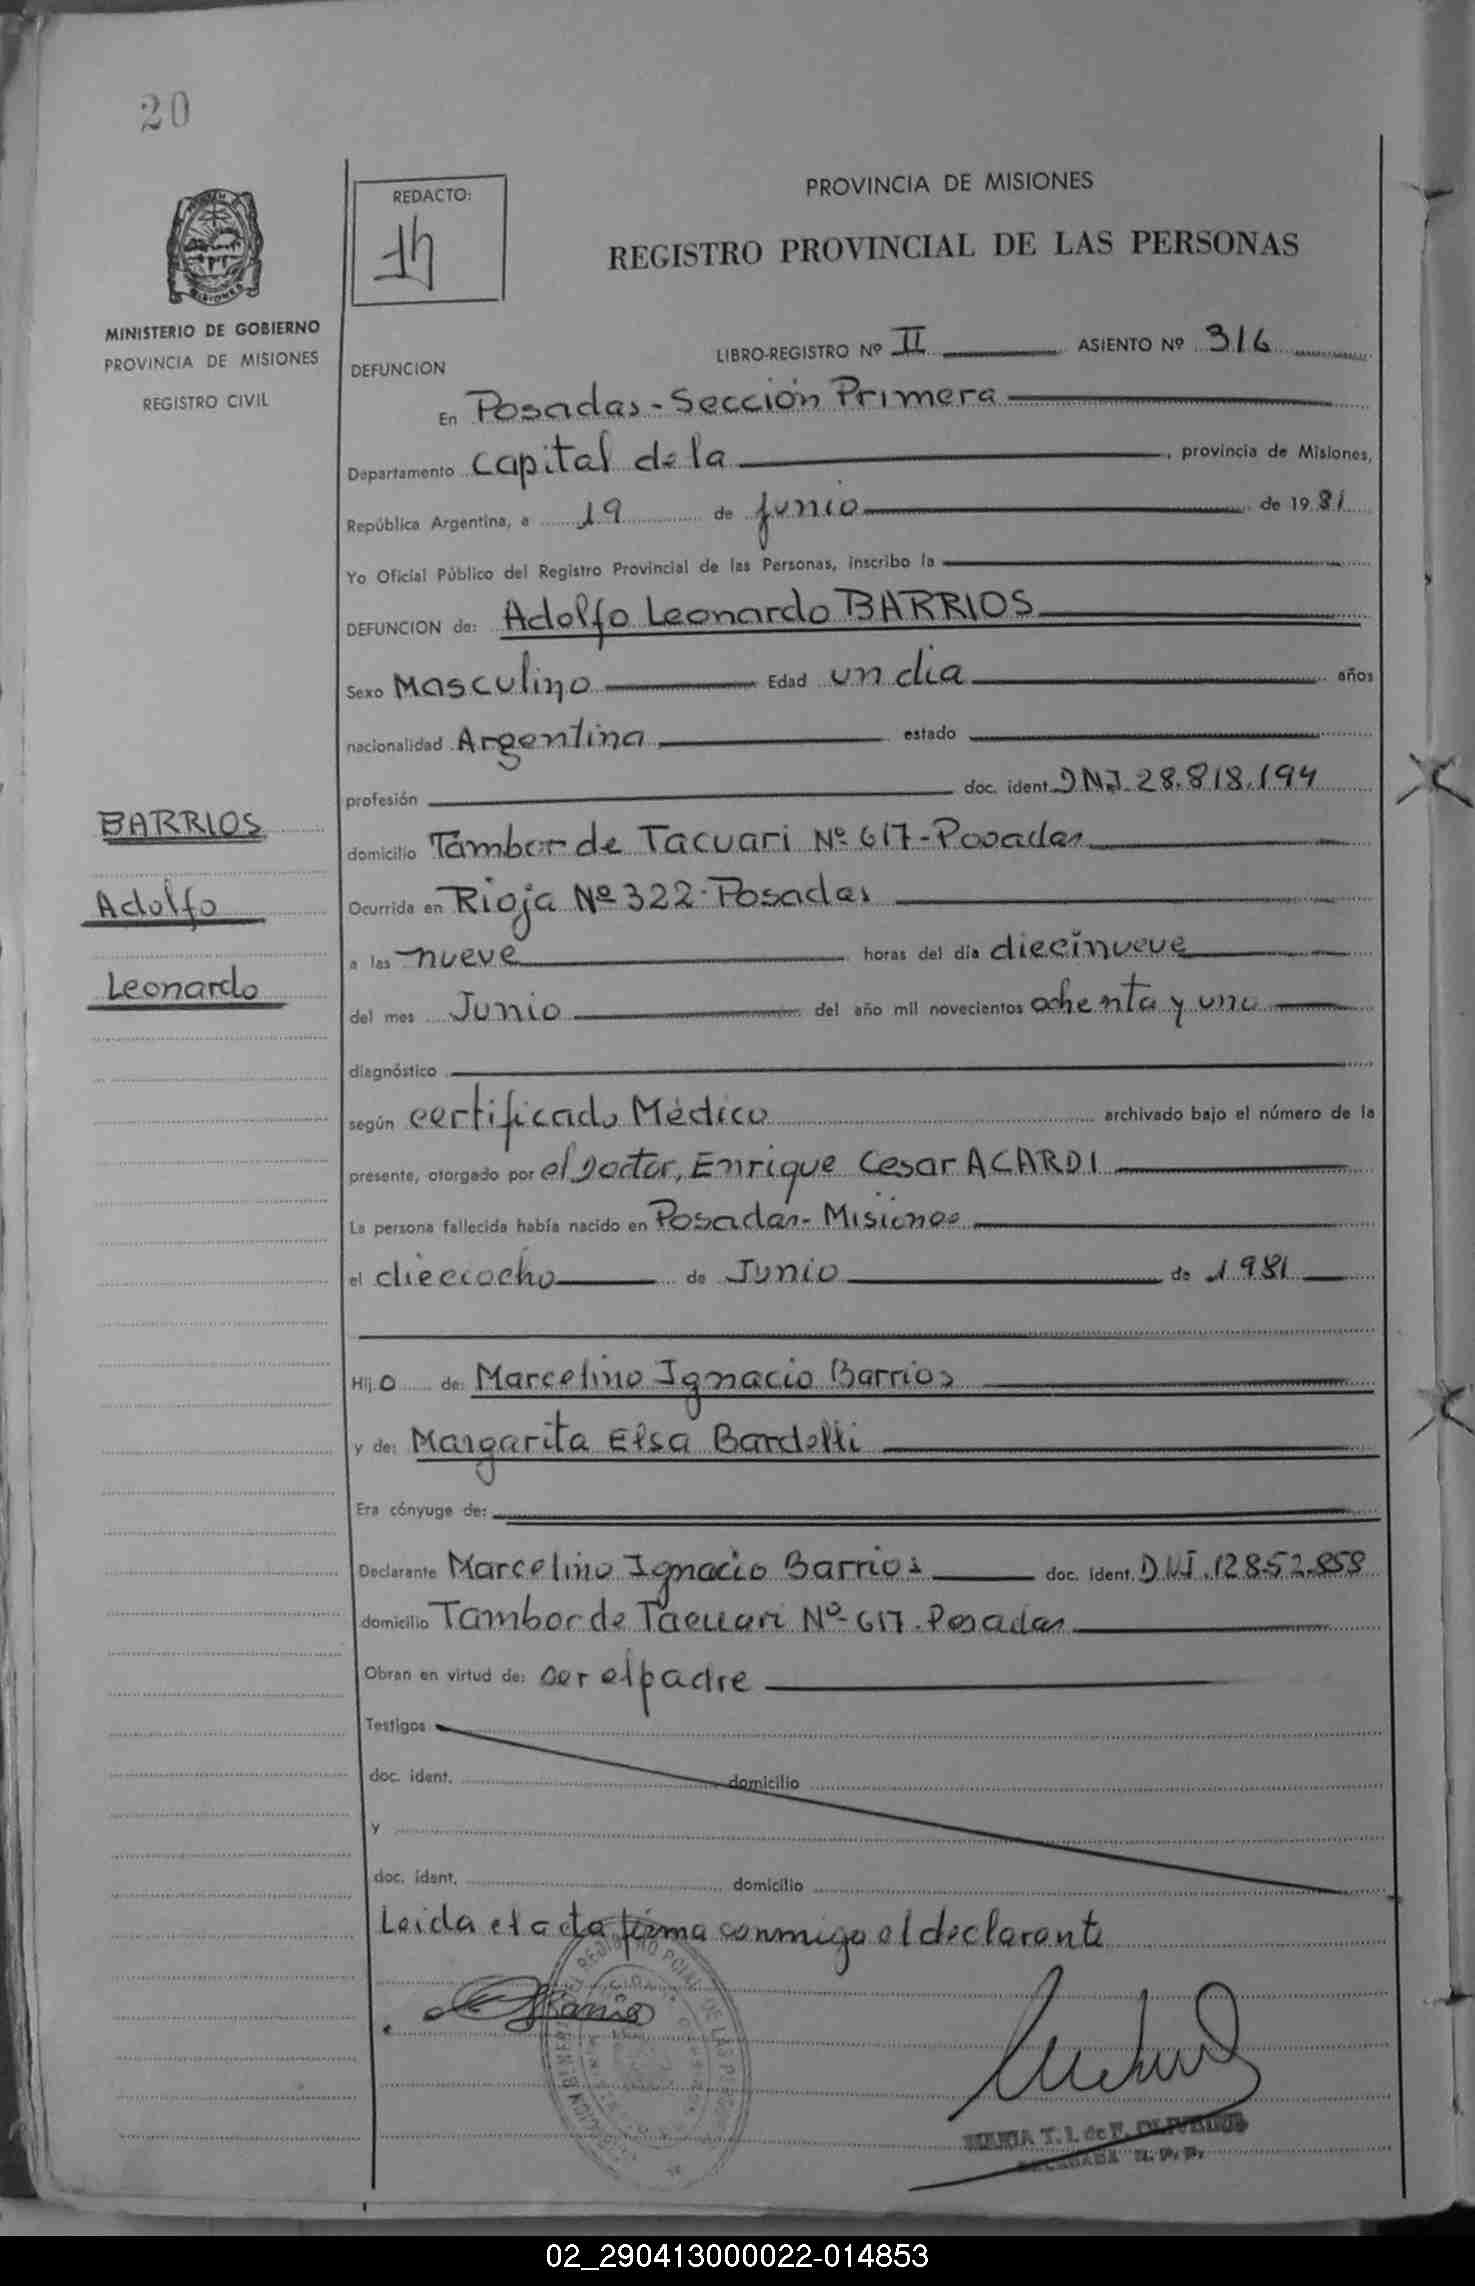 20
REDACTO:
PROVINCIA DE MISIONES
REGISTRO PROVINCIAL DE LAS PERSONAS
MINISTERIO DE GOBIERNO
PROVINCIA DE MISIONES
REGISTRO CIVIL
DEFUNCION
LIBRO-REGISTRO Nº II ASIENTO Nº 316
En Posadas - Sección Primera
Departamento Capital de la, provincia de Misiones,
República Argentina, a 19 de junio de 1981
Yo Oficial Público del Registro Provincial de las Personas, inscribo la
DEFUNCION de: Adolfo Leonardo BARRIOS
Sexo Masculino Edad un dia años
nacionalidad Argentina estado
profesión doc. ident. DNI 28.818.194
BARRIOS
Adolfo
Leonardo
domicilio Tambor de Tacuari Nº 617 - Posadas
Ocurrida en Rioja Nº 322 - Posadas
a las nueve horas del día diecinueve
del mes Junio del año mil novecientos ochenta y uno
diagnóstico
según certificado Médico archivado bajo el número de la
presente, otorgado por el Doctor, Enrique Cesar ACARDI
La persona fallecida había nacido en Posadas - Misiones
el dieciocho de Junio de 1981
Hijo de: Marcelino Ignacio Barrios
y de: Margarita Elsa Bardelli
Era cónyuge de:
Declarante Marcelino Ignacio Barrios doc. ident. DNI. 12852.858
domicilio Tambor de Tacuari Nº 617 - Posadas
Obran en virtud de: ser el padre
Testigos
doc. ident. domicilio
y
doc. ident. domicilio
Leida el acta firma conmigo el declarante
MARIA T. I. de F. OLIVEIRA
02_290413000022-014853